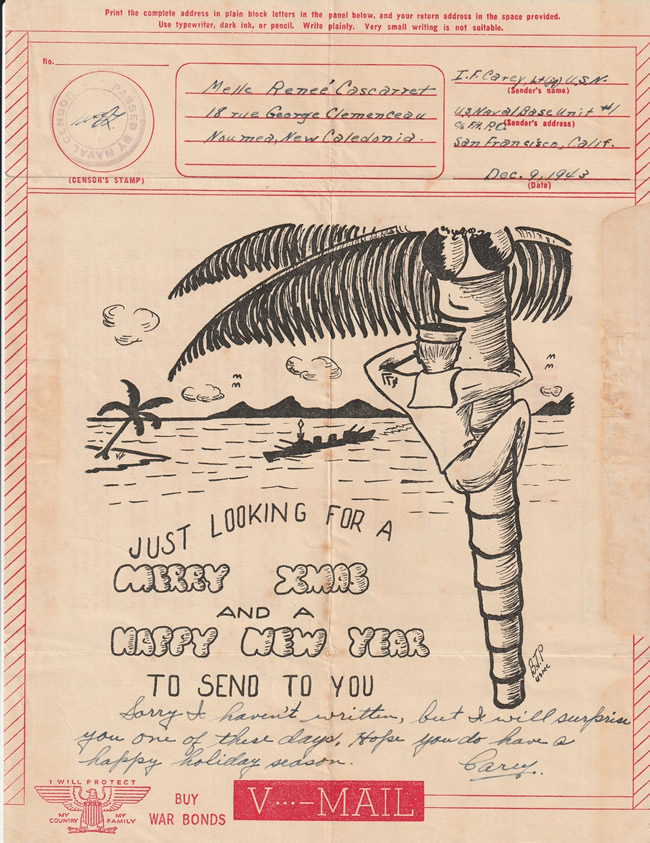 Print the complete address in plain block letters in the panel below, and your return address in the space provided.
Use typewriter, dark ink, or pencil. Write plainly. Very small writing is not suitable.
No.
PASSED BY NAVAL CENSOR
(CENSOR'S STAMP)
Melle Reneé Cascarret
18 rue George Clemenceau
Noumea, New Caledonia.
I.F. Carey, Lt(jg) U.S.N.
(Sender's name)
U.S. Naval Base Unit #1
(Sender's address)
c/o F.P.O.
San Francisco, Calif.
Dec. 9, 1943
(Date)
JUST LOOKING FOR A
MERRY XMAS
AND A
HAPPY NEW YEAR
TO SEND TO YOU
B.J.P
USMC
Sorry I haven't written, but I will surprise
you one of these days. Hope you do have a
happy holiday season. Carey.
I WILL PROTECT
MY COUNTRY MY FAMILY
BUY
WAR BONDS
V···—MAIL